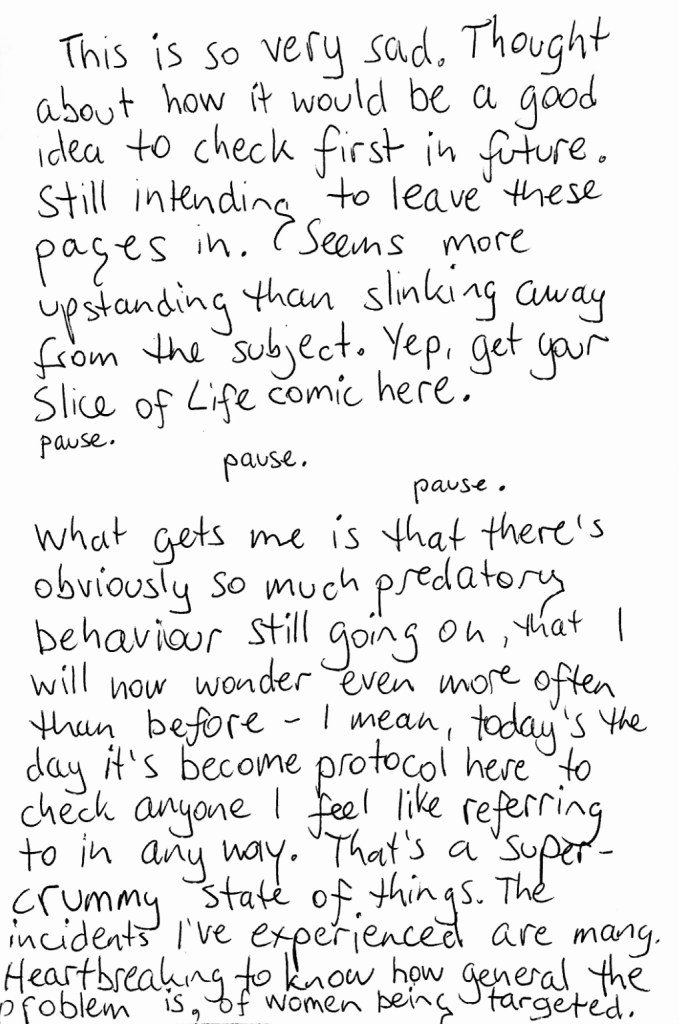 This is so very sad. Thought
about how it would be a good
idea to check first in future.
Still intending to leave these
pages in. Seems more
upstanding than slinking away
from the subject. Yep, get your
Slice of Life comic here.
pause.
pause.
pause.
What gets me is that there's
obviously so much predatory
behaviour still going on, that I
will now wonder even more often
than before - I mean, today's the
day it's become protocol here to
check anyone I feel like referring
to in any way. That's a super-
crummy state of things. The
incidents I've experienced are many.
Heartbreaking to know how general the
problem is, of women being targeted.